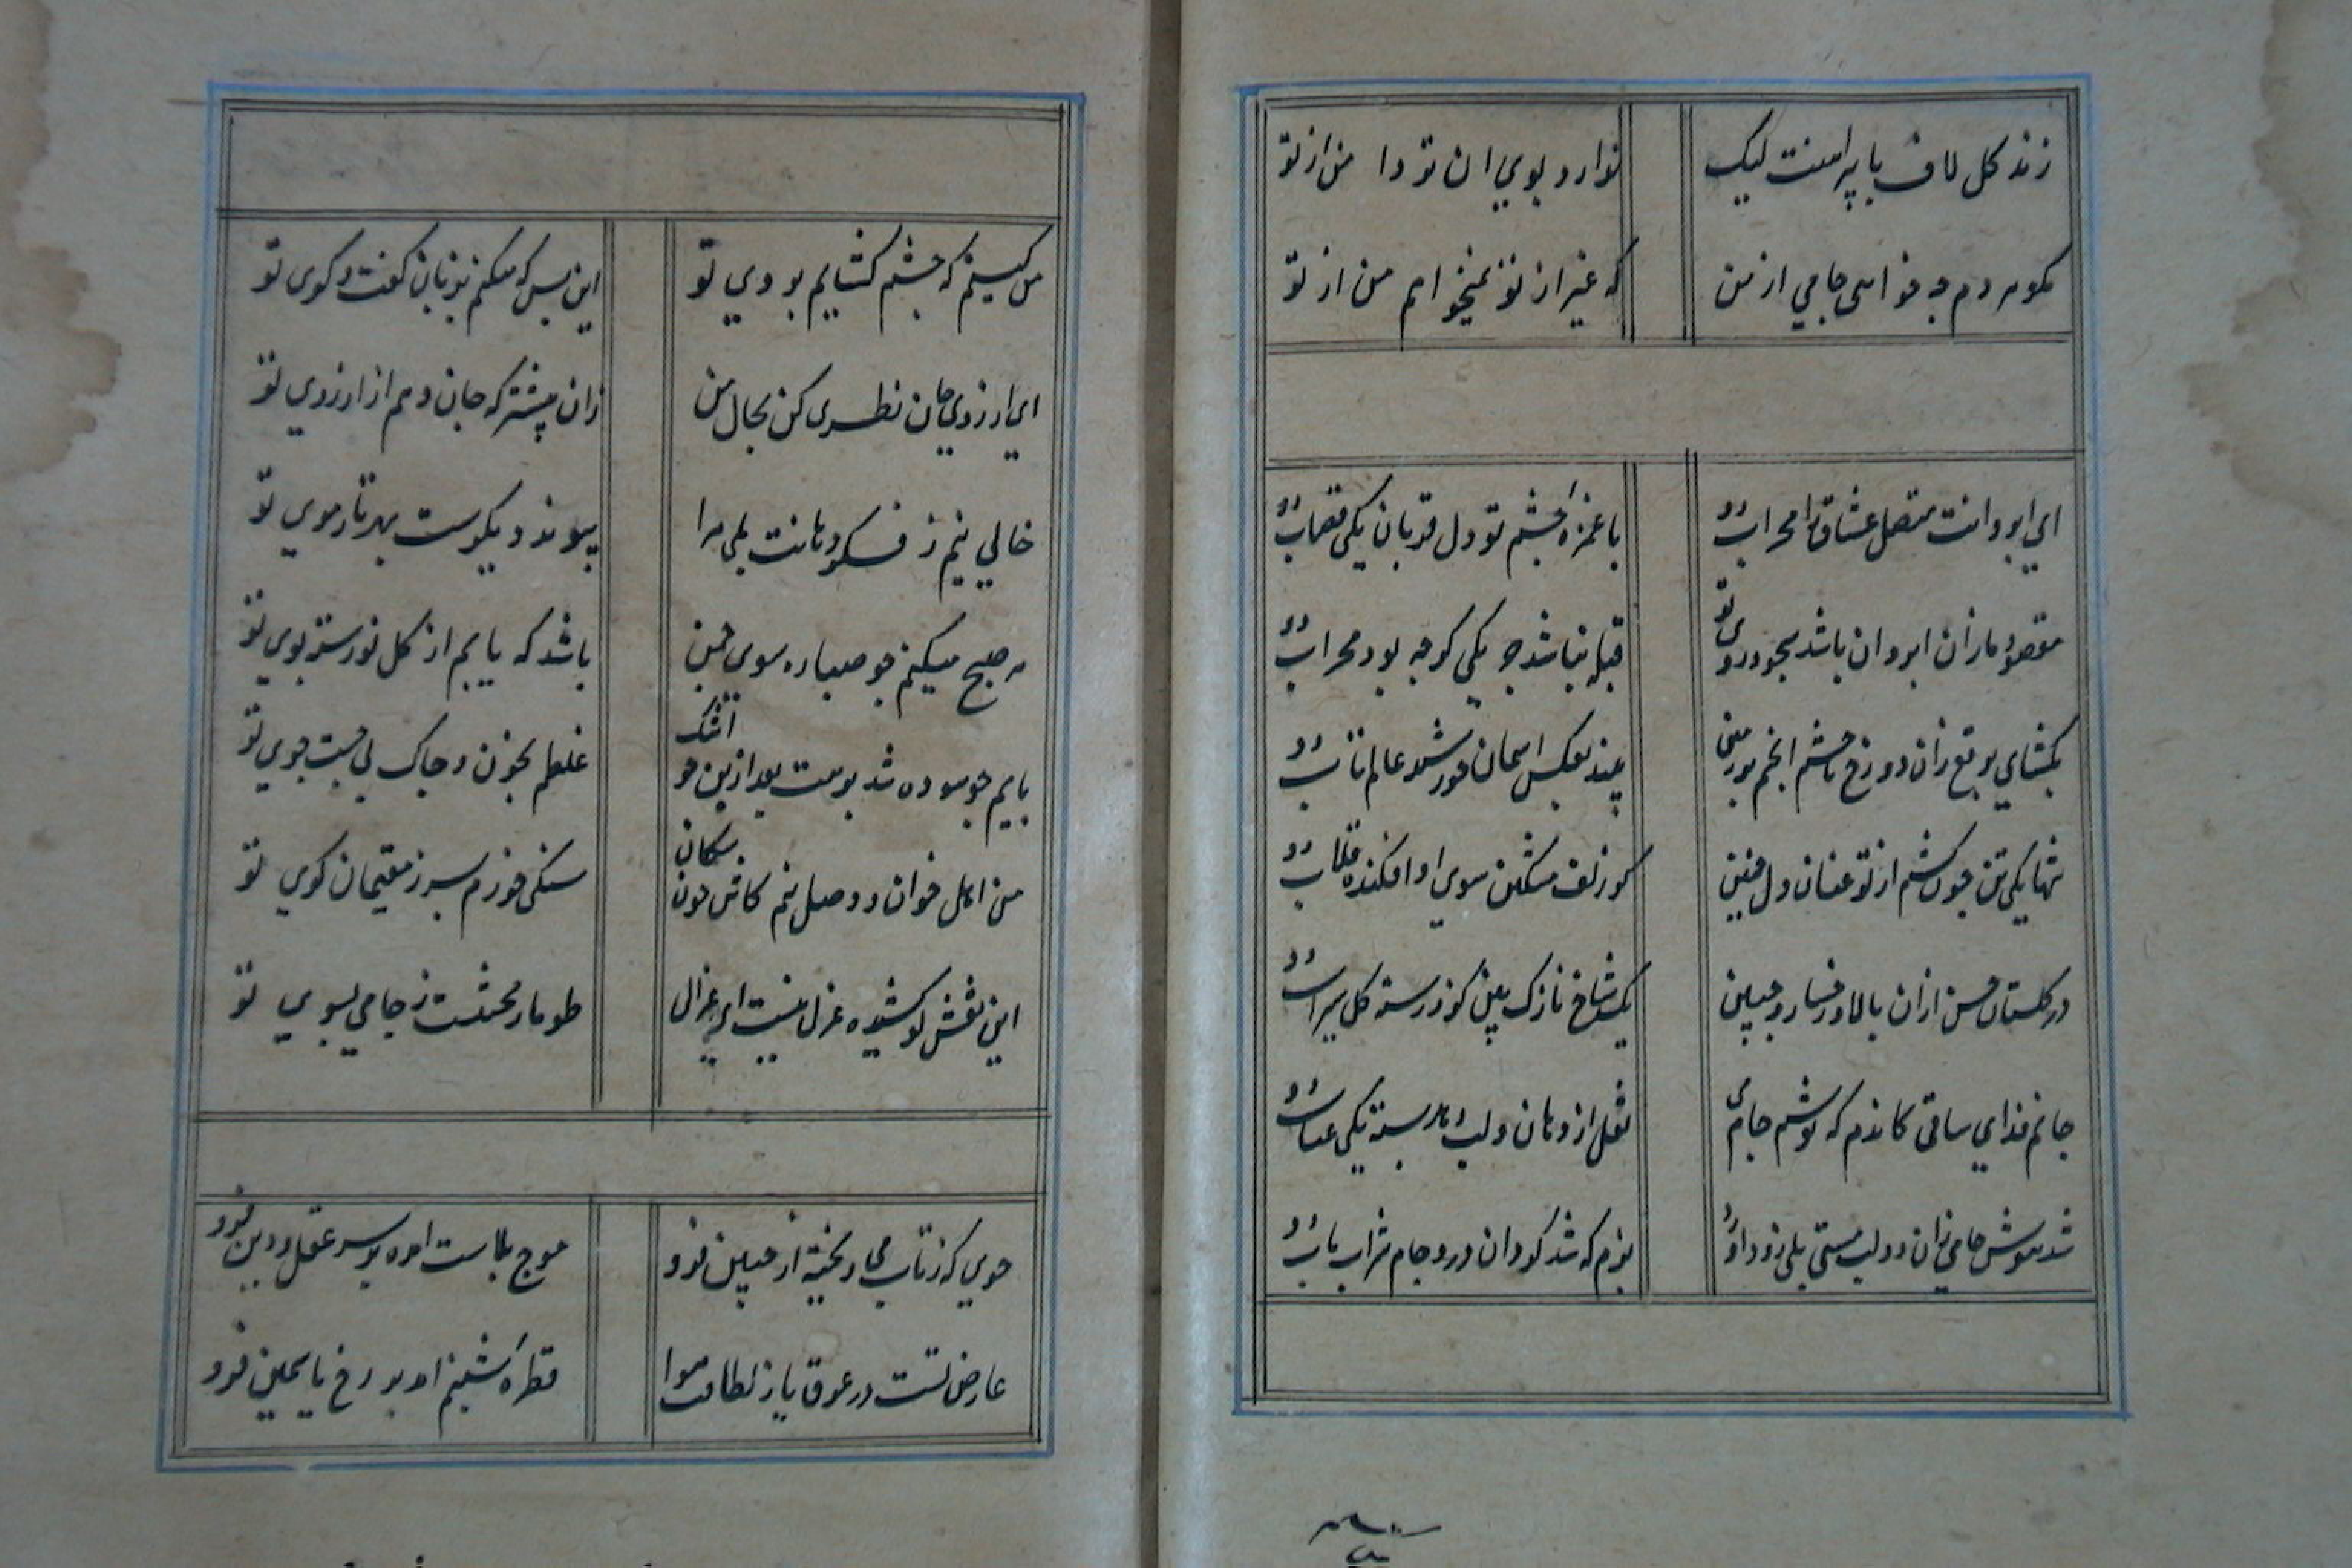 زند کل لاف با پیراهنت لیک ندارد بوي ان تو دا من از تو
مکو هر دم چه خواهی جامي از من که غیر از تو نمیخواهم من از تو
اي ابروانت متصل عشاق را محراب دو با غمزه چشم تو دل قربان یکی قصاب دو
مقصود ما زان ابروان باشد سجود روی تو قبله نباشد جز یکی کرچه بود محراب دو
بکشاي برقع زان دو رخ تا چشم انجم بر زمین بیند بعکس اسمان خورشید عالم تاب دو
تنها یکی تن چون کشم از تو عنان دل چنین کز زلف مشکین سوي او افکنده قلاب دو
در کلستان حسن ازان بالا و رخسار و جبین یک شاخ نازک بین کزو رسته کل سیراب دو
جانم فداي ساقی کاندم که نوشم جام می نقل از دهان و لب دهد پسته یکی عناب دو
شد بیهوش جامي زان دو لب مستی بلی زود اورد بزم که شد کردان درو جام شراب ناب دو
من کیستم که چشم کشایم بروي تو این بس که میکنم بزبان کفت و کوی تو
اي ارزوي جان نظری کن بحال من زان پیشتر که جان دهم از ارزوي تو
خالي نیم ز فکر دهانت بلی مرا پیوند دیکرست بهر تار موي تو
هر صبح میکنم چو صبا ره سوی چمن باشد که یابم از کل نورسته بوي تو
پایم چو سوده شد برهت بعد ازین چو اشک غلطم بخون و خاک پی جست جوي تو
من اهل خوان و وصل نیم کاش چون سکان سنکی خورم بسر ز مقیمان کوي تو
این نقش کو کشیده غزل نیست ای غزال طومار محنتست ز جامي بسوي تو
خوي که ز تاب می ریخته از جبین فرو موج بلاست امده بر سر عقل و دین فرو
عارض تست در عرق یا ز لطافت هوا قطره شبنم امد بر رخ یاسمین فرو